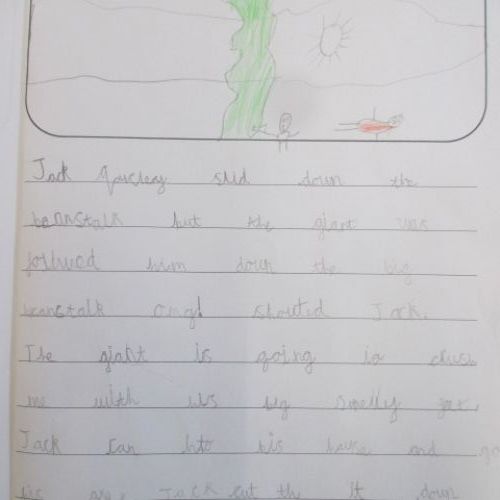 Jack slid down the
beanstalk but the giant was
him down the big
beanstalk omgl shouted Jack.
The giant is going to
me with his big smelly
Jack ran into his house and
Jack cut the it down